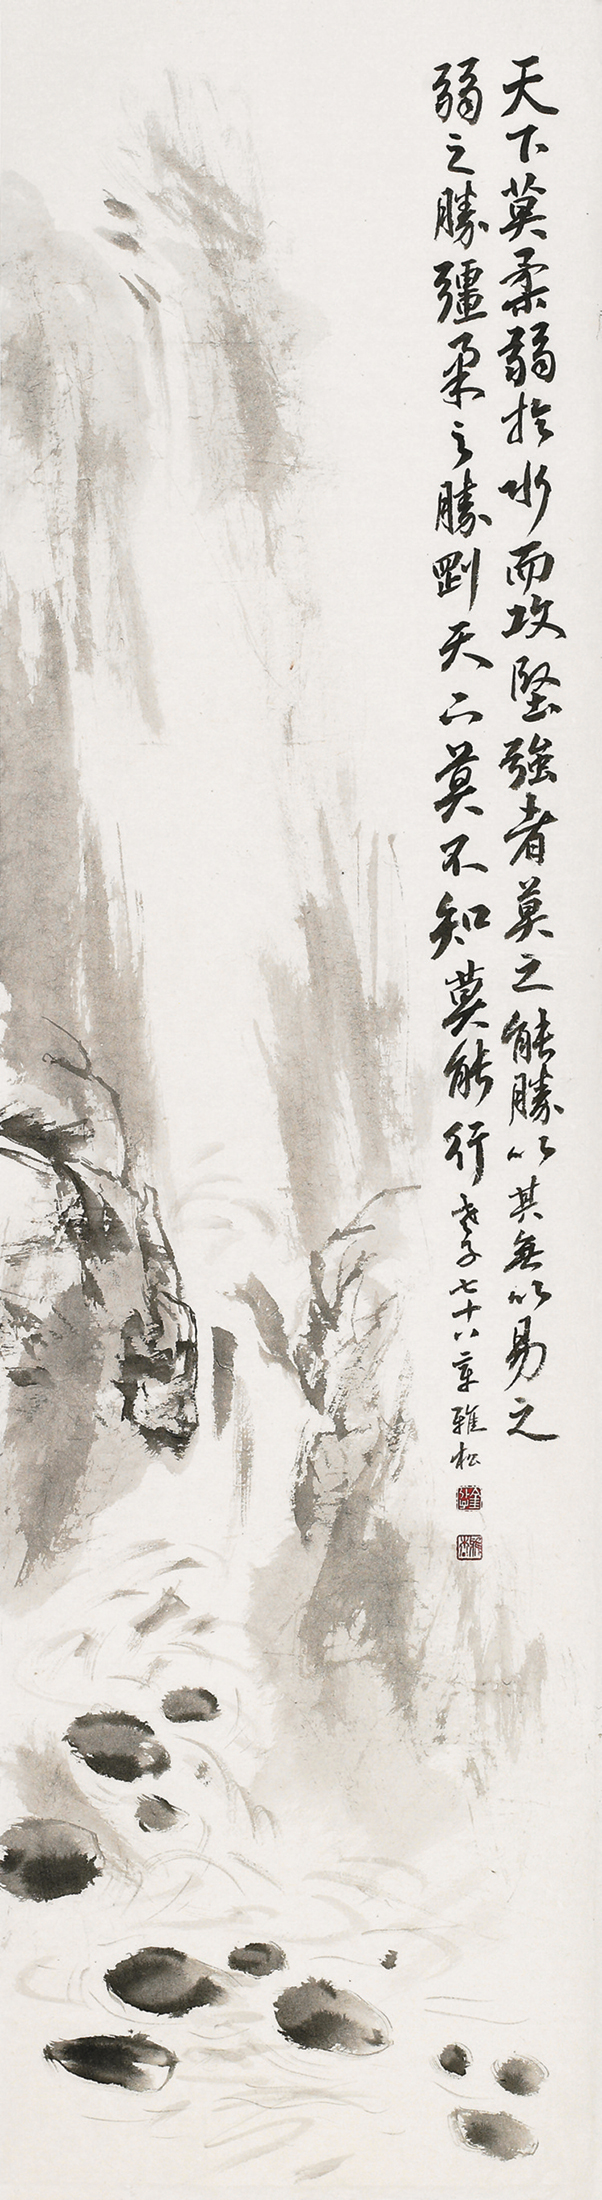 天下莫柔弱於水而攻堅強者莫之能勝以其無以易之
弱之勝彊柔之勝剛天下莫不知莫能行老子七十八章雅松